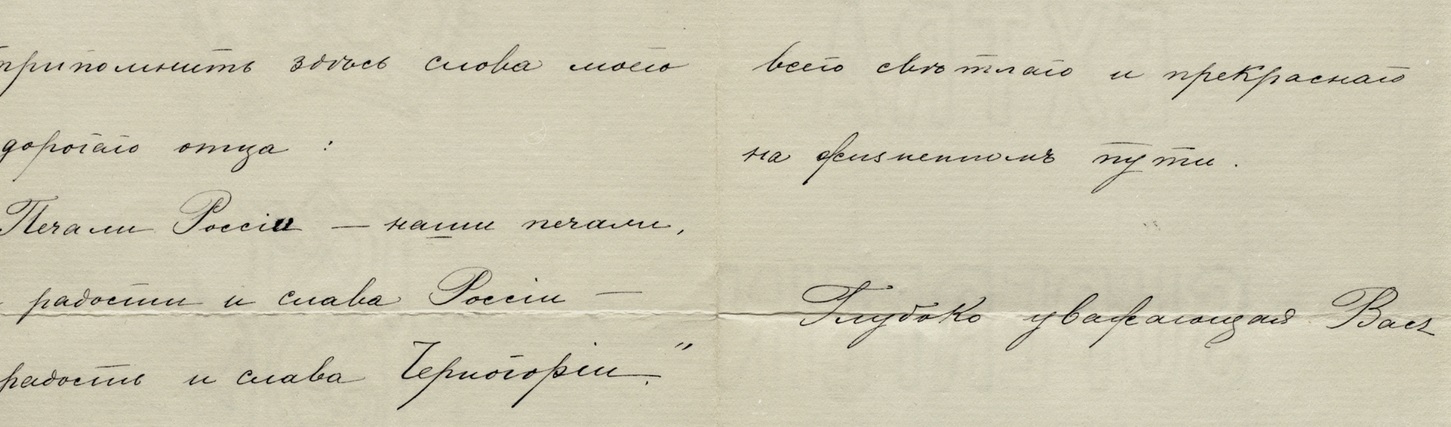 припомнить здѣсь слова моего
дорогаго отца :
Печали Россіи — наши печали,
радости и слава Россіи —
радость и слава Черногоріи."
всего свѣтлаго и прекраснаго
на жизненномъ пути.
Глубоко уважающая Васъ